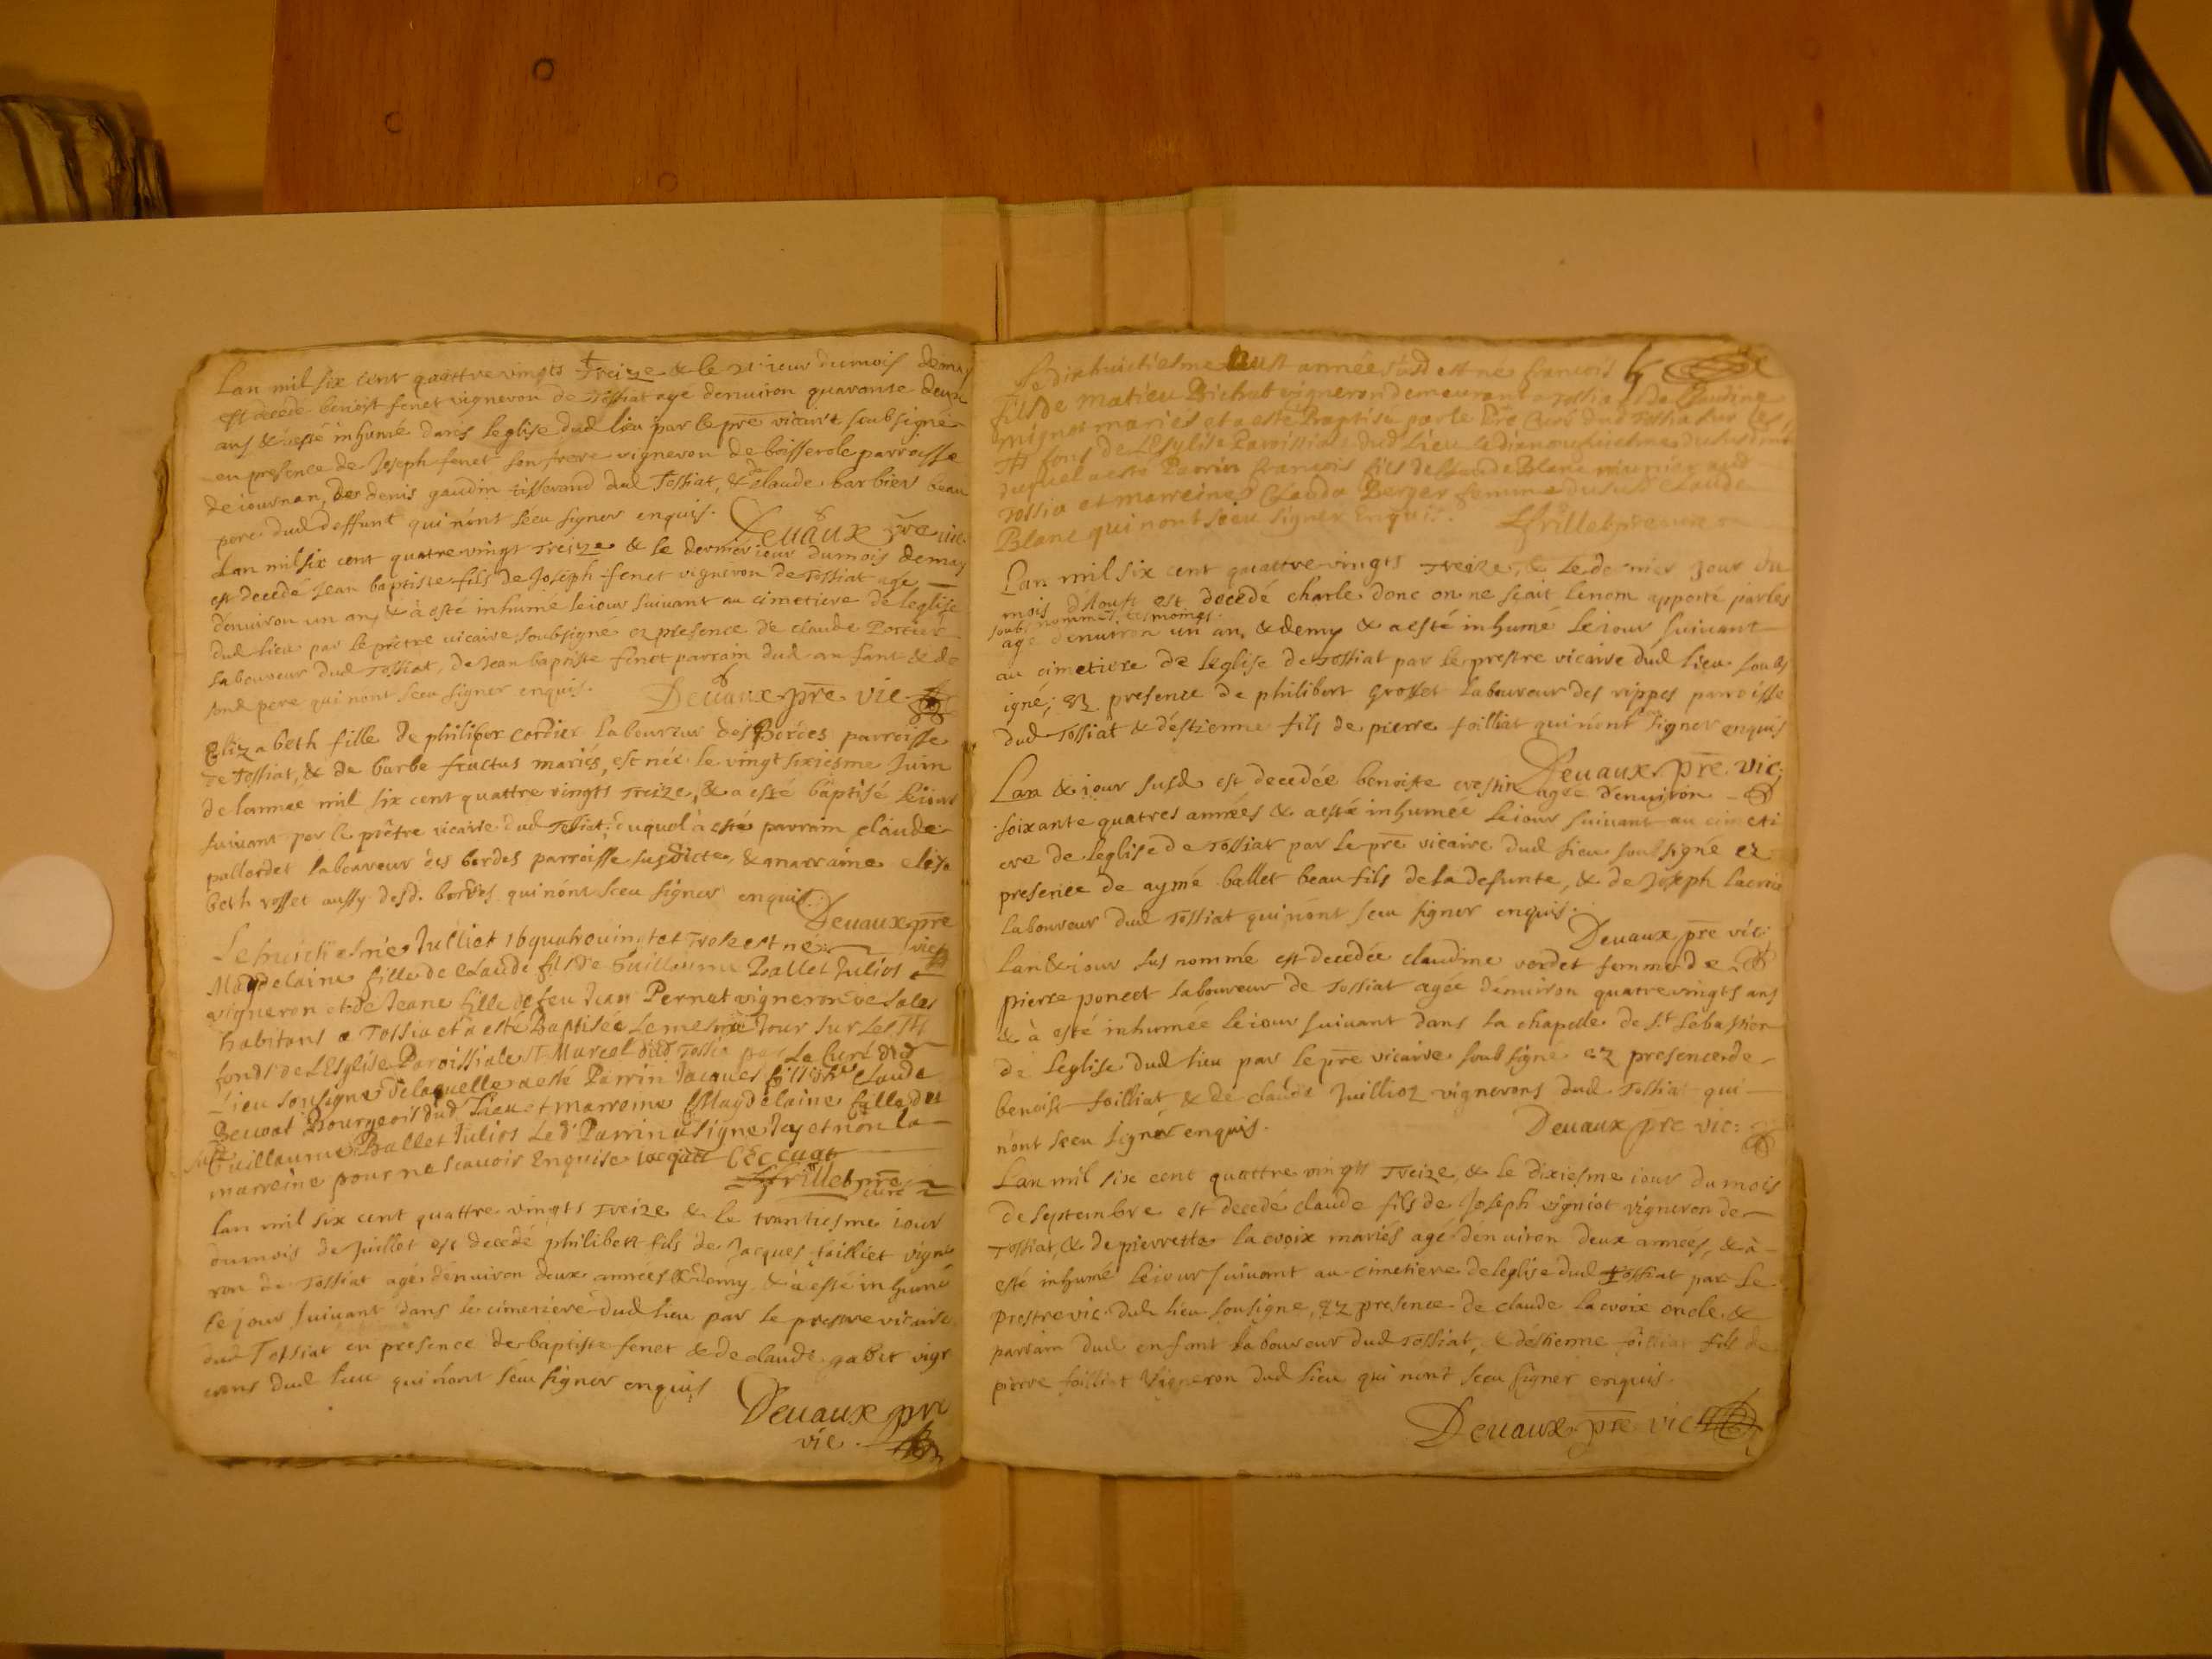 Lan mil six cent quattre vingts treize & le 21 iour du mois de may
est decede benoist fenet vigneron de Tossiat agé denuiron quarante deux
ans & à esté inhumé dans leglise dud lieu par le pre vicaire soubsigné
en presence de Joseph fenet son frere vigneron de boisserole parroisse
de iournan, de denis gaudin tisserand dud Tossiat, & de claude barbier beau
pere dud deffunt qui nónt sceu signer enquis. Deuaux pre vic.
Lan mil six cent quatre vingt treize & le dernier iour du mois de may
est decedé Jean baptiste fils de Joseph fenet vigneron de Tossiat agé
denuiron un an, & à esté inhumé le iour suiuant au cimetiere de leglise
dud lieu par le prêtre uicaire soubsigné ez presence de claude Portier
laboureur dud Tossiat, de Jean baptiste fenet parrain dud anfant & de
sond pere qui nont sceu signer enquis. Deuaux pre vic
Elizabeth fille de philiber cordier laboureur des Bordes parroisse
de Tossiat, & de barbe fructus mariés, est née le vingt sixiesme Juin
de lannee mil six cent quattre vingts treize, & a esté baptisé le iour
suiuant par le prêtre vicaire dud Tossiat, duquel à esté parrain claude
pallordet laboureur des bordes parroisse susdicte, & marraine eliza
beth rosset aussy desd. bordes qui nónt sceu signer enquis. Deuaux pre
vic
Le huictiesme Julliet 16 quatrouintet trese est né
Magdelaine fille de Claude fils de Guillaume Ballet Julios
vigneron et de Jeane fille de feu Jean Pernat vigneron de Sales
habitans a Tossia et a esté Baptisée le mesme Jour sur les sts
fonds de LEsglise Paroissiale St Marcel dud Tossia par le Curé dud
Lieu sousigné de laquelle a esté Parrin Jacques fils de Claude
Becuat Bourgeois dud Lieu et marreine Magdelaine fille du
susd Guillaume Ballet Julios Led Parrin a signé Icy et non la
marreine pour ne scauoir Enquise Jacque Beccuat
Frillet pre
curé
Lan mil six cent quattre vingts treize & le trantiesme iour
du mois de Juillet est decedé philibert fils de Jacques failliet vigne
ron de Tossiat agé dénuiron deux années & demy & à esté inhumé
le jour suiuant dans le cimetiere dud lieu par le prestre vicaire
dud Tossiat en presence de baptiste fenet & de claude gabet vigne
rons dud lieu qui nónt sceu signer enquis
Deuaux pre
vic.
Le dixhuictiesme Aust année susd est né francois
fils de Matieu Bichat vigneron demeurant a Tossia et de Claudine
mignot mariés et a esté Baptisé par le Pre Curé dud Tossia sur les
sts fons de LEsglise Paroissiale dud Lieu le dixneufuiesme du susd
duquel a esté Parrin francois fils de Claude Blanc meunier aud
Tossia et marreine Clauda Berger femme du susd Claude
Blanc qui nont sceu signer Enquis. Frillet pre curé
Lan mil six cent quattre vingts treize, & le dernier jour du
mois dAoust est decedé charle donc on ne scait le nom apporté par les
soub nommés tesmoings
agé denuiron un an, & demy & a esté inhumé le iour suiuant
au cimetiere de léglise de Tossiat par le prestre vicaire dud lieu soubs
igné; ez presence de philibert Grosset laboureur des rippes parroisse
dud Tossiat & déstienne fils de pierre failliat qui nónt signer enquis
Deuaux pre vic
Lan & iour susd est decedée benoiste crestin agee denuiron
soixante quatres années & a esté inhumée le iour suiuant au cimeti
ere de leglise de Tossiat par le pre vicaire dud lieu soubsigné ez
presence de aymé ballet beau fils de la defunte, & de Joseph lacroix
laboureur dud Tossiat qui nónt sceu signer enquis.
Deuaux pre vic
Lan & iour sus nommé est decedée claudine verdet femme de
pierre poncet laboureur de Tossiat agée dénuiron quatre vingts ans
& à esté inhumée le iour suiuant dans la chapelle de st sebastien
de leglise dud lieu par le pre vicaire soubsigné ez presence de
benoist failliat, & de claude Juillioz vignerons dud Tossiat qui
nónt sceu signer enquis. Deuaux pre vic:
Lan mil six cent quattre vingts treize, & le dixiesme iour du mois
de septembre est decedé claude fils de Joseph vigniot vigneron de
Tossiat, & de pierrette lacroix mariés agé dénuiron deux années, & à
esté inhumé le iour suiuant au cimetiere de leglise dud Tossiat par le
prestre vic. dud lieu sousigne, ez presence de claude lacroix oncle, &
parrain dud enfant laboureur dud Tossiat, & déstienne failliat fils de
pierre failliat vigneron dud lieu qui nónt sceu signer enquis.
Deuaux pre vic